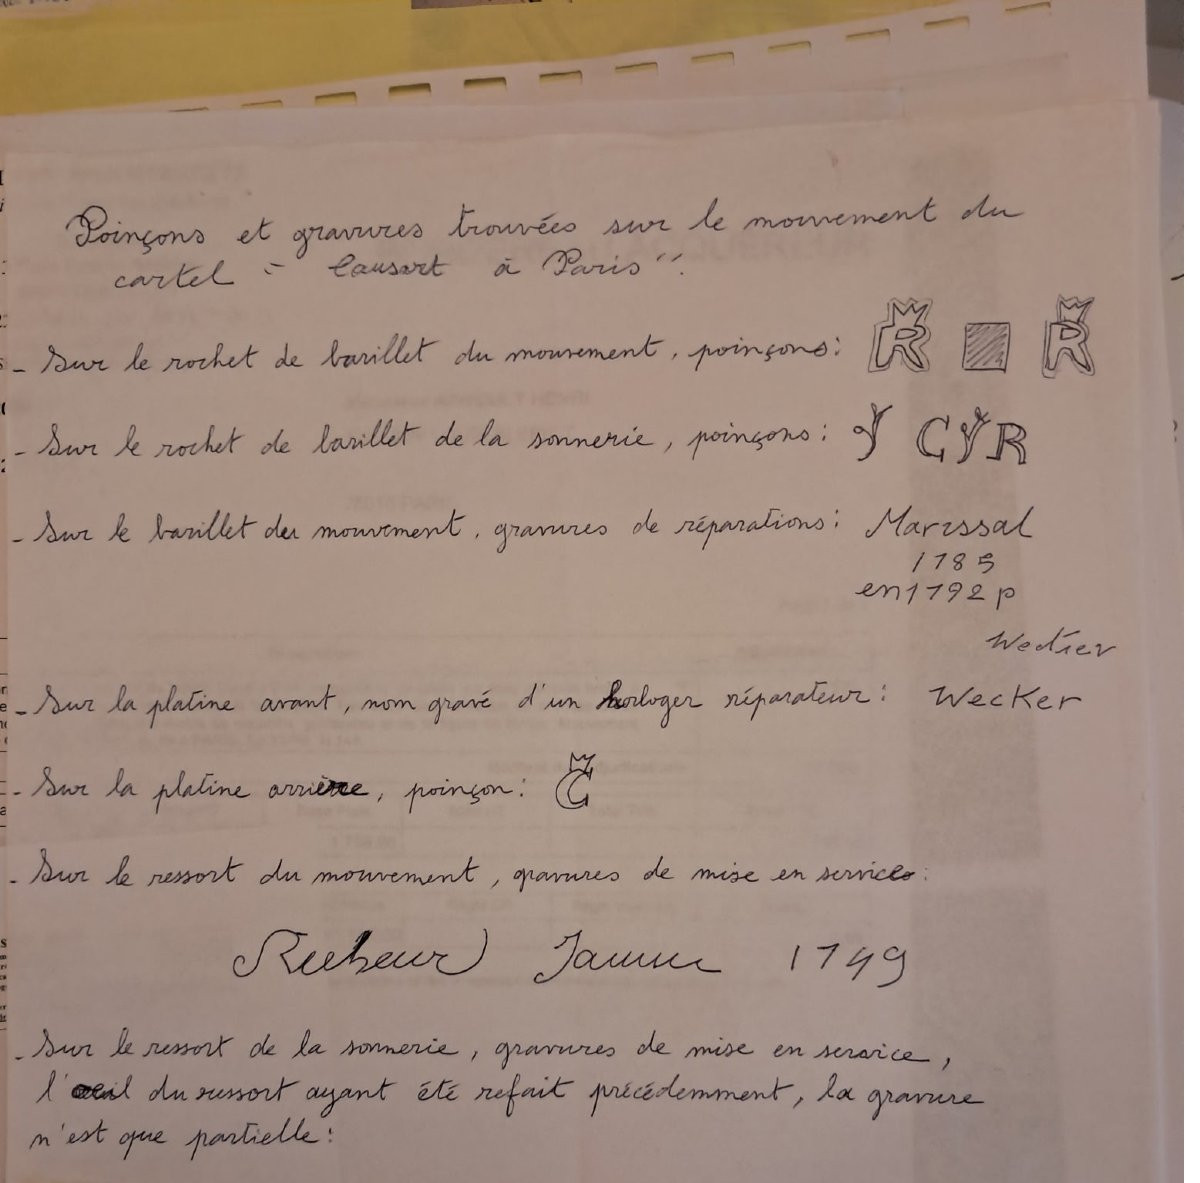 Poinçons et gravures trouvées sur le mouvement du
cartel " Causart à Paris".
- Sur le rochet de barillet du mouvement, poinçons: R R
- Sur le rochet de barillet de la sonnerie, poinçons: Y C Y R
- Sur le barillet du mouvement, gravures de réparations: Marissal
1785
en 1792 p
- Sur la platine avant, nom gravé d'un horloger réparateur: Wecker
- Sur la platine arrière, poinçon: C
- Sur le ressort du mouvement, gravures de mise en service:
1749
- Sur le ressort de la sonnerie, gravures de mise en service,
l'œil du ressort ayant été refait précédemment, la gravure
n'est que partielle: